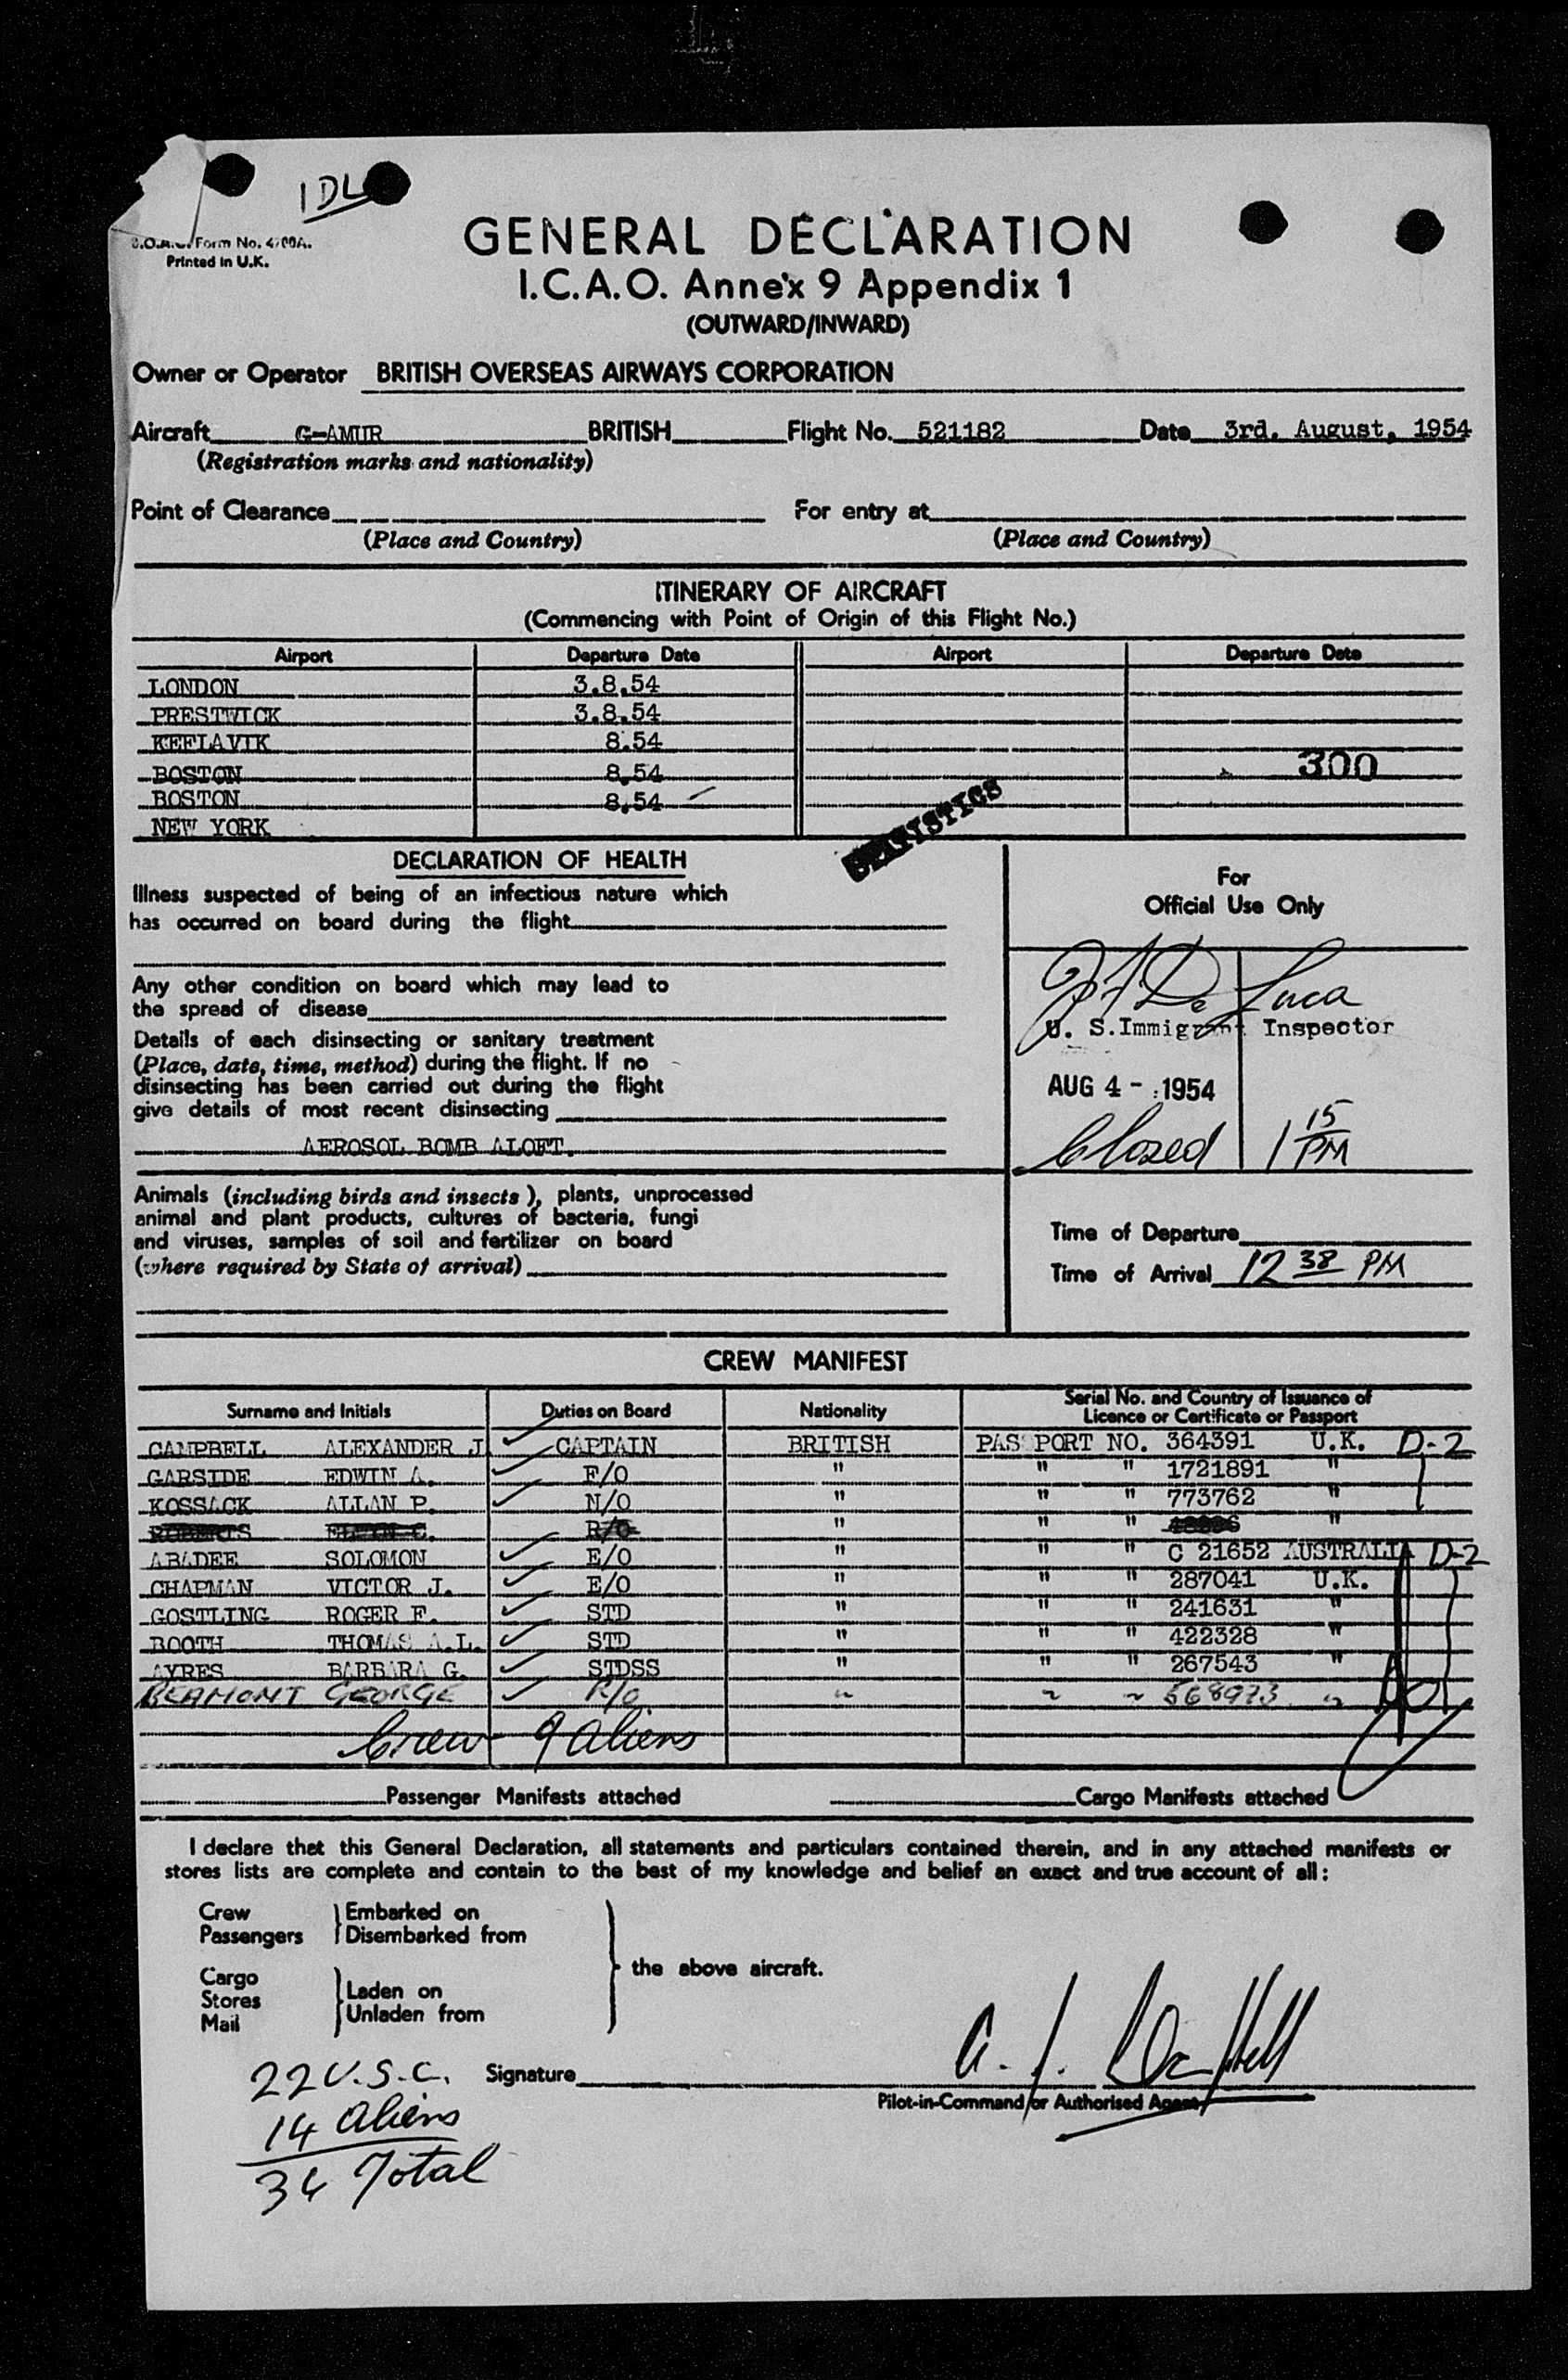 1 DL
B.O.A.C. Form No. 4700A.
Printed in U.K.
GENERAL DECLARATION
I.C.A.O. Annex 9 Appendix 1
(OUTWARD/INWARD)
Owner or Operator BRITISH OVERSEAS AIRWAYS CORPORATION
Aircraft G-AMUR BRITISH Flight No. 521182 Date 3rd. August, 1954
(Registration marks and nationality)
Point of Clearance For entry at
(Place and Country) (Place and Country)
ITINERARY OF AIRCRAFT
(Commencing with Point of Origin of this Flight No.)
Airport Departure Date Airport Departure Date
LONDON 3.8.54
PRESTWICK 3.8.54
KEFLAVIK 8.54
BOSTON 8.54 300
BOSTON 8.54
NEW YORK
STATISTICS
DECLARATION OF HEALTH
Illness suspected of being of an infectious nature which
has occurred on board during the flight
Any other condition on board which may lead to
the spread of disease
Details of each disinsecting or sanitary treatment
(Place, date, time, method) during the flight. If no
disinsecting has been carried out during the flight
give details of most recent disinsecting
AEROSOL BOMB ALOFT.
Animals (including birds and insects), plants, unprocessed
animal and plant products, cultures of bacteria, fungi
and viruses, samples of soil and fertilizer on board
(where required by State of arrival)
For
Official Use Only
De Luca
U. S.Immigrant Inspector
AUG 4 - 1954
Closed 1 15 PM
Time of Departure
Time of Arrival 12 38 PM
CREW MANIFEST
Surname and Initials Duties on Board Nationality Serial No. and Country of Issuance of
Licence or Certificate or Passport
CAMPBELL ALEXANDER J CAPTAIN BRITISH PASSPORT NO. 364391 U.K. D-2
GARSIDE EDWIN A. F/O " " " 1721891 "
KOSSACK ALLAN P. N/O " " " 773762 "
ROBERTS R/O " " " "
ABADEE SOLOMON E/O " " " C 21652 AUSTRALIA D-2
CHAPMAN VICTOR J. E/O " " " 287041 U.K.
GOSTLING ROGER F. STD " " " 241631 "
BOOTH THOMAS A.L. STD " " " 422328 "
AYRES BARBARA G. STDSS " " " 267543 "
BEAMONT GEORGE R/O " " " 568973 "
Crew 9 aliens
Passenger Manifests attached Cargo Manifests attached
I declare that this General Declaration, all statements and particulars contained therein, and in any attached manifests or
stores lists are complete and contain to the best of my knowledge and belief an exact and true account of all:
Crew Embarked on
Passengers Disembarked from
the above aircraft.
Cargo
Stores Laden on
Mail Unladen from
22 U.S.C. Signature A. J. Campbell
Pilot-in-Command or Authorised Agent
14 aliens
36 Total